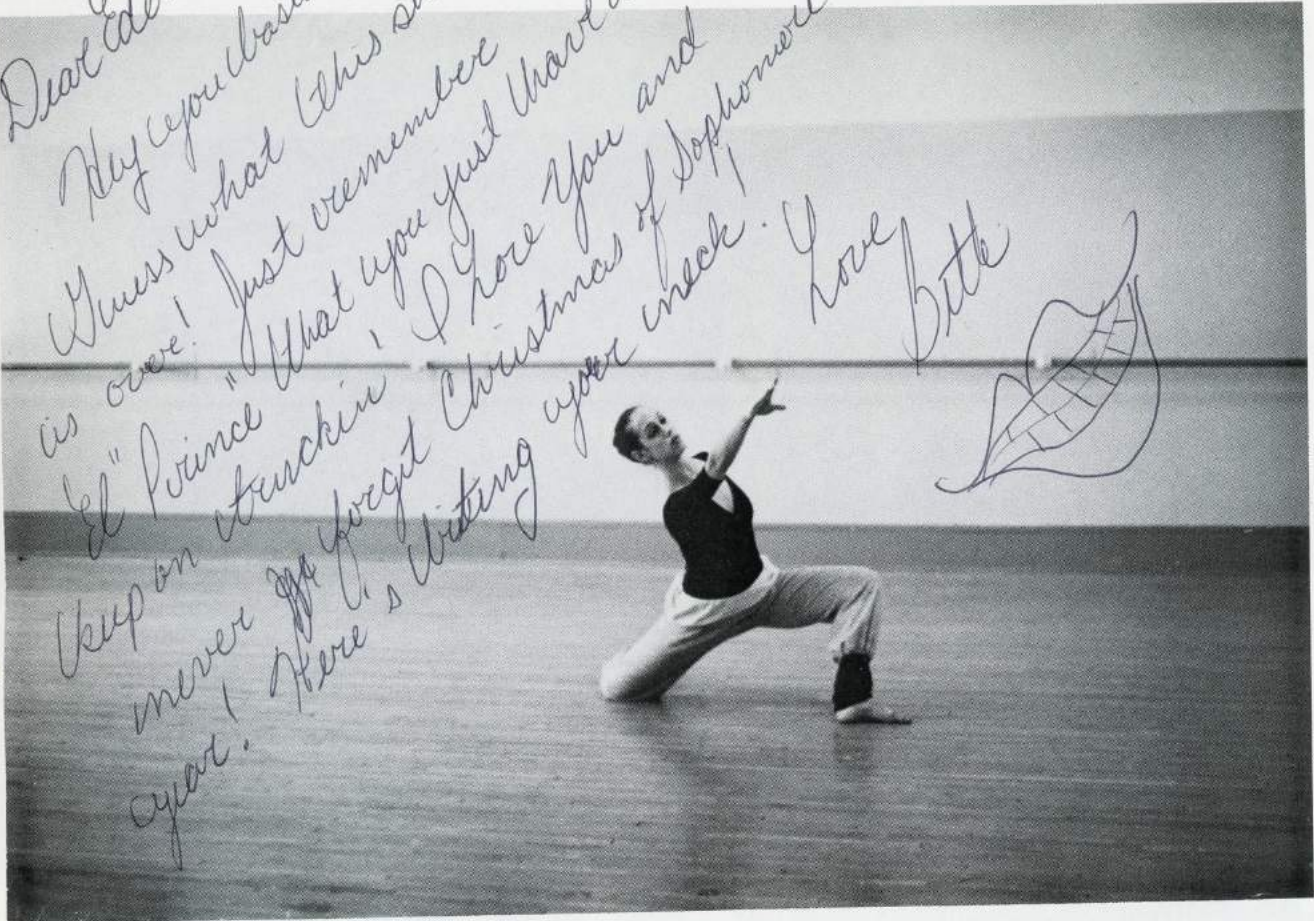 Dear Ede
Hey you
Guess what this
is over! Just remember
El" Prince" What you just have
Keep on truckin'! I Love You and
never forget Christmas of Sophomore
year! Here's biting your neck!
Love
Beth